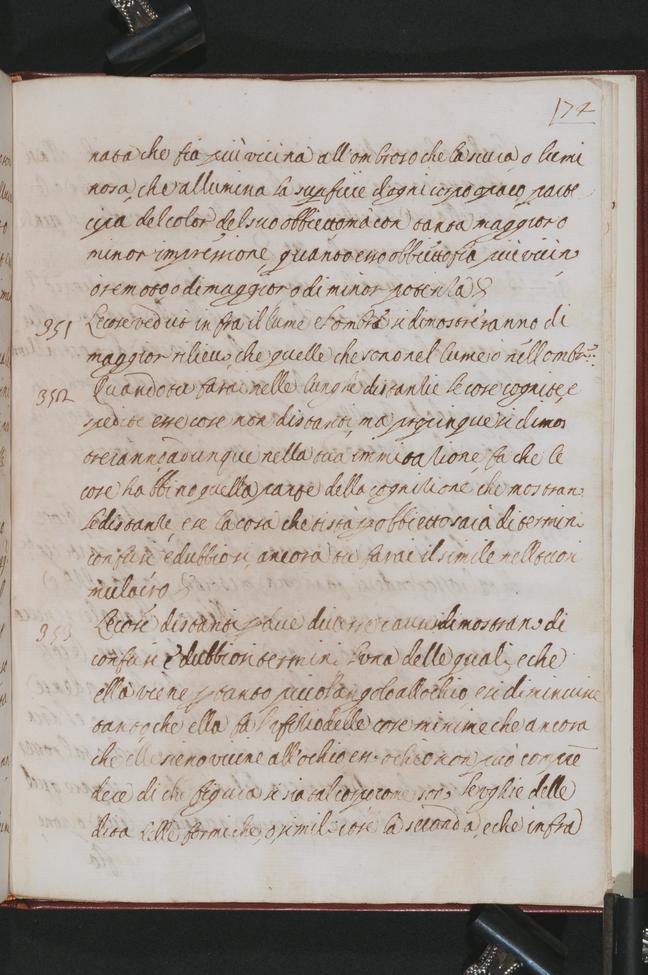 174
nata che sia più vicina all'ombroso che la scura, o lumi
nosa, che allumina la superficie d'ogni corpo opaco, parte
cipa del color del suo obbietto ma con tanta maggior o
minor impressione, quanto esso obbietto sia più vicin
o remoto o di maggior o di minor potenza
951 Le cose vedute infra il lume e l'ombra si dimostreranno di
maggior rilievo, che quelle che sono nel lume o nell'ombr
952 Quando tu farai nelle lunghe distantie le cose cognite, e
spedite esse cose non distanti, ma propinque si dimos
treranno, adunque nella tua immitatione fa che le
cose habbino quella parte della cognitione, che mostran
le distantie, e se la cosa che ti sta per obbietto sarà di termini
confusi e dubbiosi, ancora tu farai il simile nel tuo si
mulacro
953 Le cose distanti per due diverse cause si dimostrano di
confusi e dubbiosi termini, l'una delle quali, e che
ella viene per tanto piccol angolo all'ochio e si diminuisce
tanto che ella fa l'offitio delle cose minime che ancora
che elle sieno vicine all'ochio esso ochio non può compre
dere di che figura si sia tal corpo, come sono le unghie delle
dita delle formiche, o simili cose la seconda, e che infra